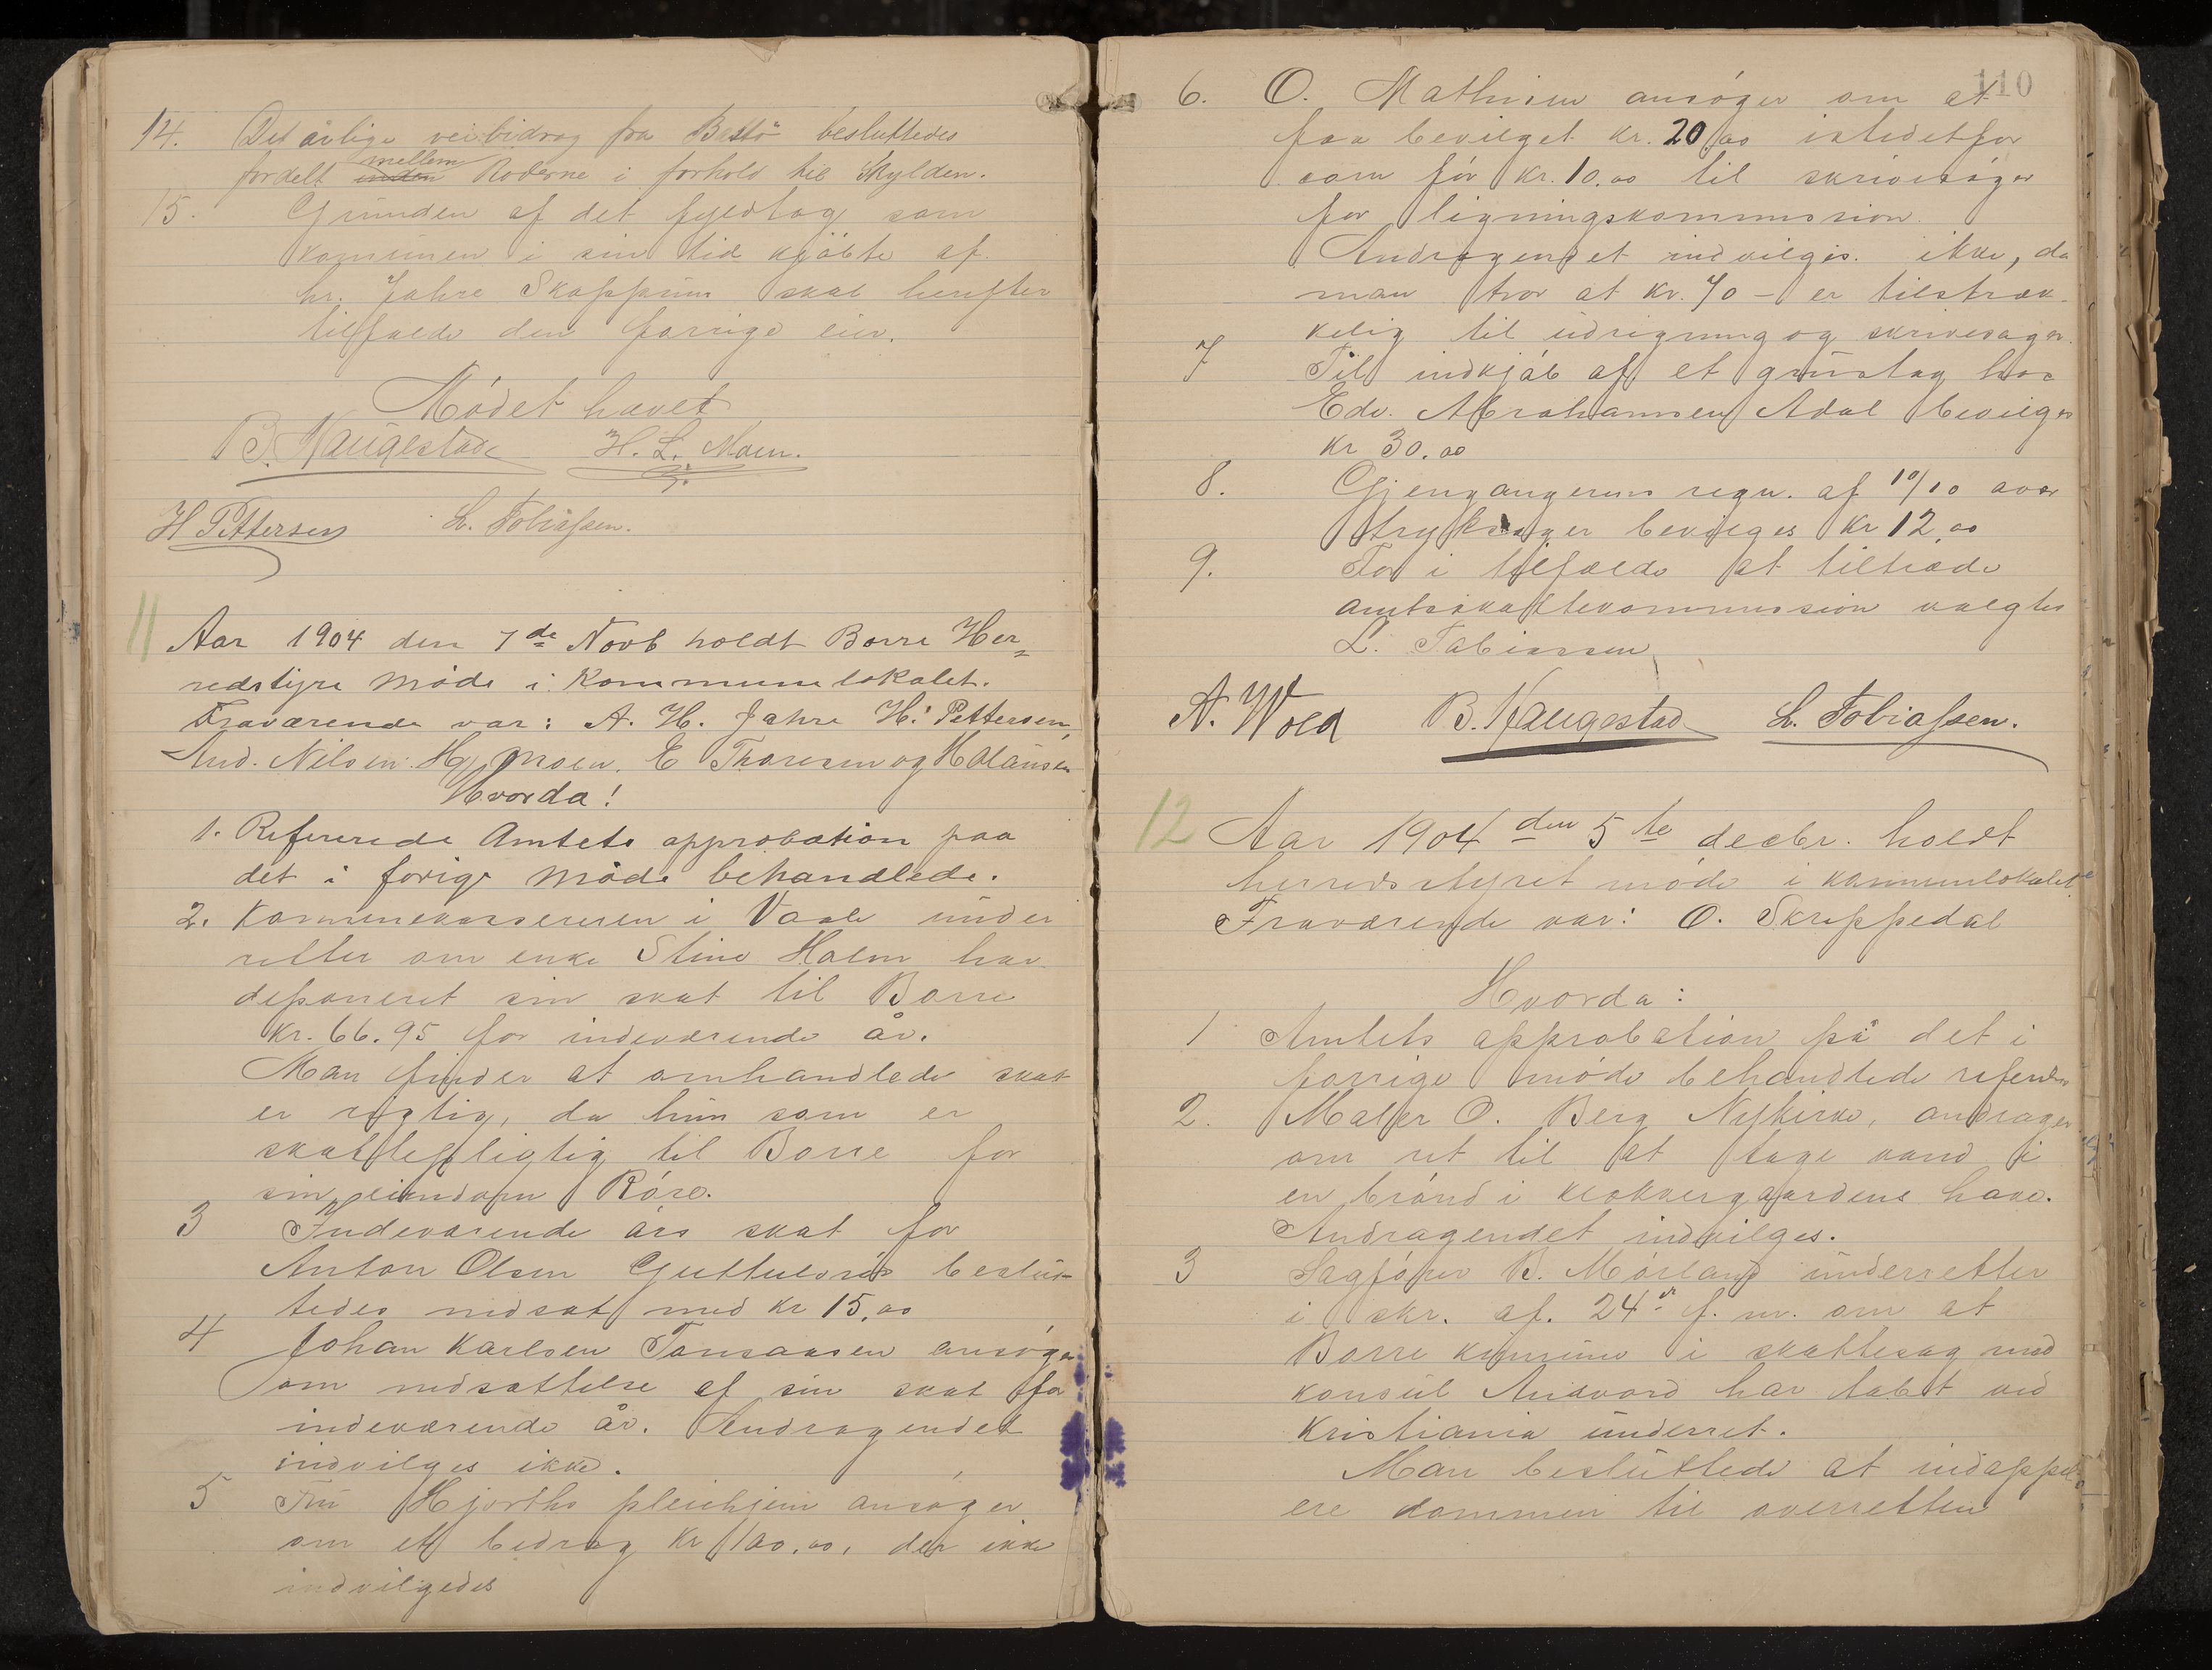 14. Det årlige veibidrag fra Bastö besluttedes
mellem
fordelt inden Roderne i forhold til Skylden.
15. Grunden af det fyldtag som
komunen i sin tid kjöbte af
hr. Jahre Skoppum skal herefter
tilfalde den forrige eier.
Mödet hævet
B. Haugestad H. L. Moen.
H Pettersen L. Tobiassen.
11
Aar 1904 den 7de Novb holdt Borre Her=
redstyre Möde i Kommunelokalet.
Fraværende var: A. H. Jahre H. Pettersen,
And. Nilsen. H. Moen. E Thoresen og H Clausen
Hvorda!
1. Refererede Amtets approbation paa
det i forige Möde behandlede.
2. Kommunekassereren i Vaale under
retter om enke Stine Holm har
deponeret sin skat til Borre
kr. 66.95 for indeværende år.
Man finder at omhandlede skat
er rigtig, da hun som er
skattepligtig til Borre for
sin eiendom Röre.
3 Indeværende års skat for
Anton Olsen Guttulsröd beslut-
tedes nedsat med kr 15,00
4 Johan Karlsen Tonsaasen ansöger
om nedsættelse af sin skat for
indeværende år. Andragendet
indvilges ikke.
5 Fru Hjorths pleiehjem ansöger
om et bidrag kr 100.00, der ikke
indvilgedes
110
6. O. Mathisen ansöger om at
faa bevilget kr. 20,00 istedetfor
som för kr. 10.00 til skrivesager
for ligningskommission.
Andragendet indvilges ikke, da
man tror at kr. 70 - er tilstræk-
kelig til udregning og skrivesager.
7 Til indkjöb af et grustag hos
Edv. Abrahamsen Adal bevilges
kr 30.00
8. Gjengangerens regn. af 10/10 over
tryksager bevilges kr 12,00
9. For i tilfælde at tiltræde
amtsskattekommission valgtes
L. Tobiassen
A. Wold B. Haugestad L. Tobiassen.
12
Aar 1904 den 5te decbr. holdt
herredsstyret möde i kommunelokalet
Fraværende var: O. Skreppedal
Hvorda:
1 Amtets approbation på det i
forrige möde behandlede refereredes
2. Maler O. Berg Nykirke, andrager
om ret til at tage vand i
en brönd i klokkergaardens have.
Andragendet indvilges.
3 Sagförer B. Mörland underretter
i skr. af. 24de f. m. om at
Borre komune i skattesag med
konsul Andvord har tabt ved
Kristiania underret.
Man besluttede at indappel-
lere dommen til overretten